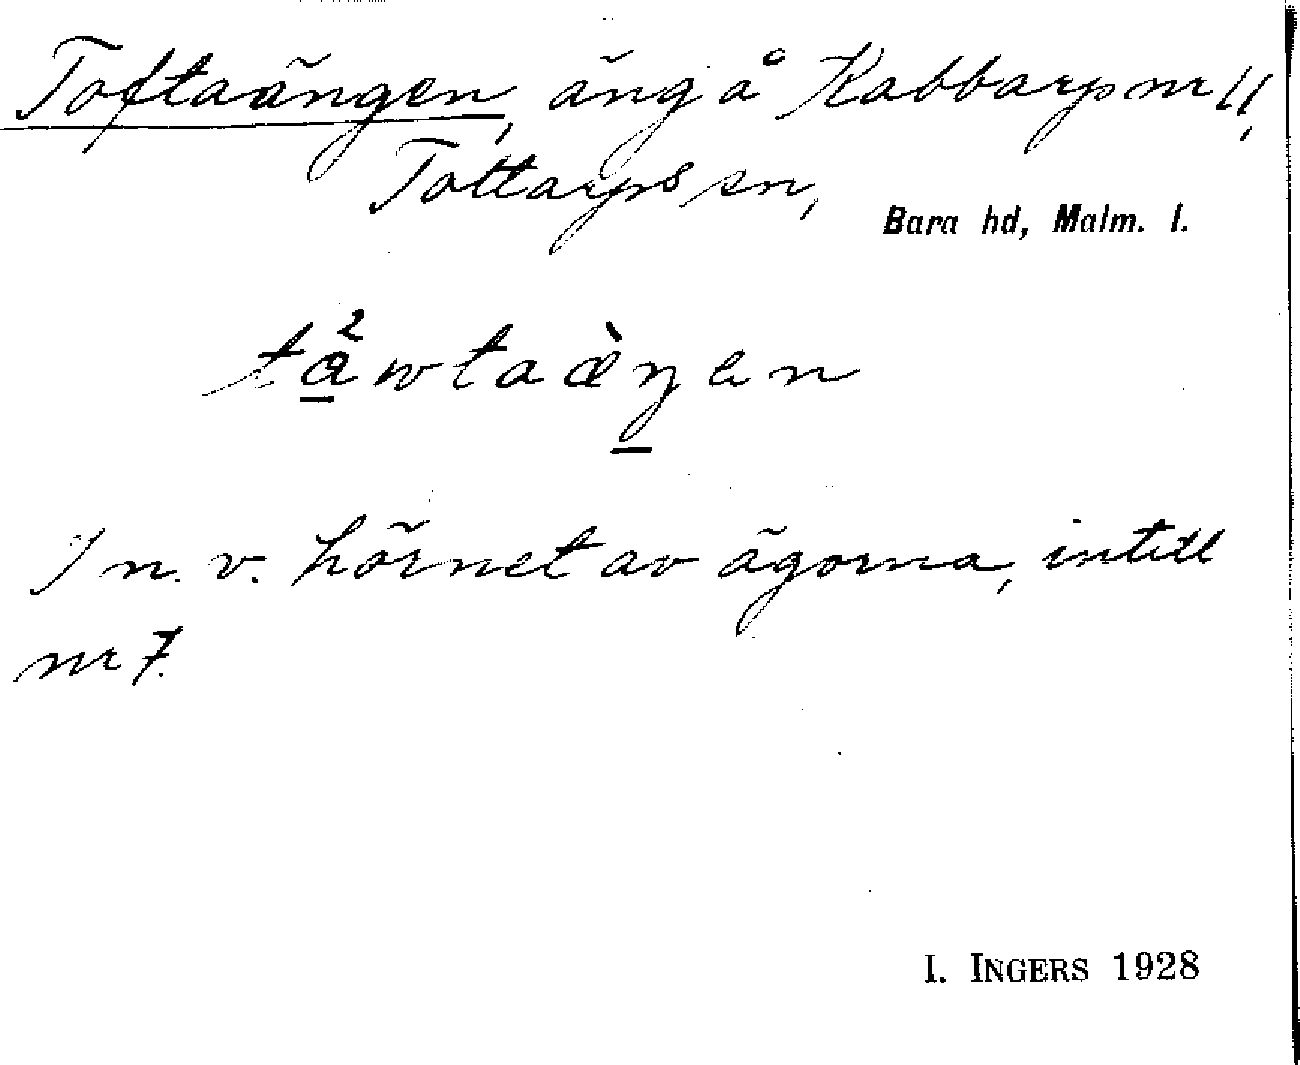 Toftaängen, äng å Kabbarp nr 11,
Tottarps sn, Bara hd, Malm. l.
ta̱²wtaæ̀ŋ̱en
I n. v. hörnet av ägorna, intill
nr 7.
I. INGERS 1928